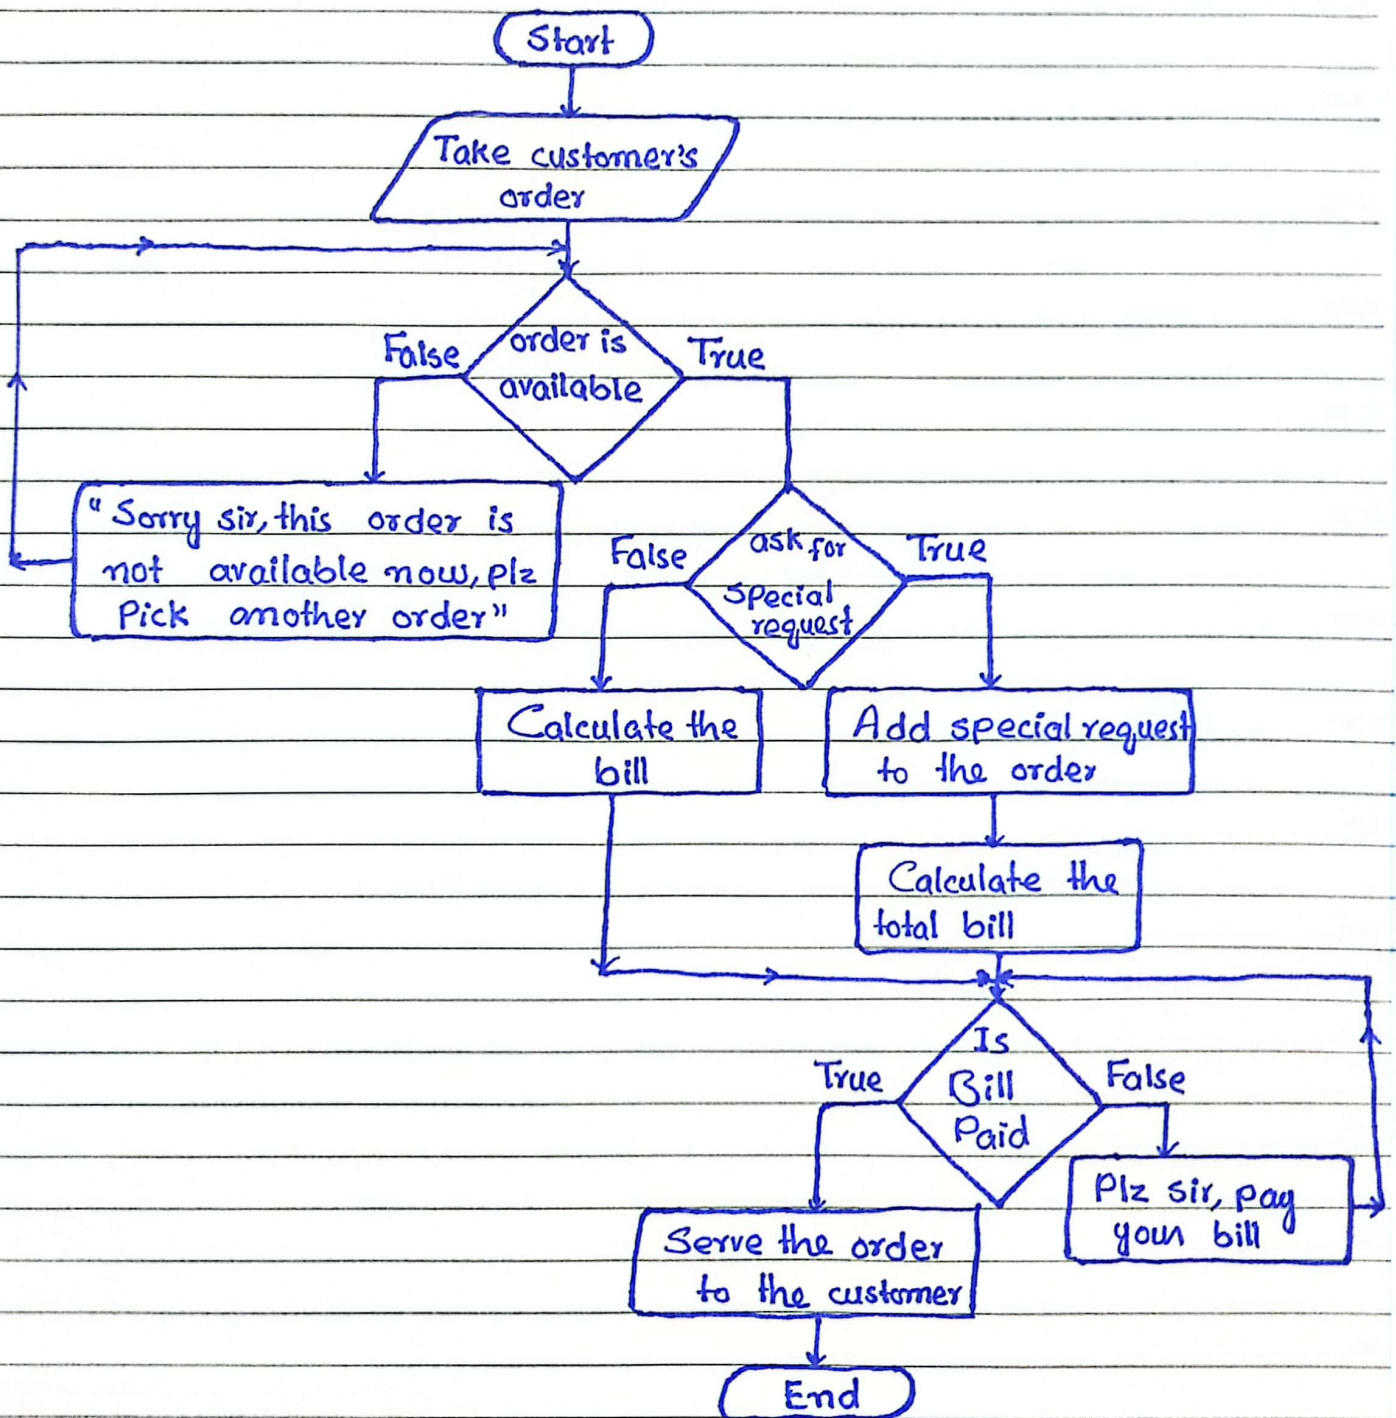 Start
Take customer's
order
False
True
order is
available
"Sorry sir, this order is
not available now, plz
Pick another order"
False
True
ask for
special
request
Calculate the
bill
Add special request
to the order
Calculate the
total bill
True
False
Is
Bill
Paid
Plz sir, pay
your bill
Serve the order
to the customer
End